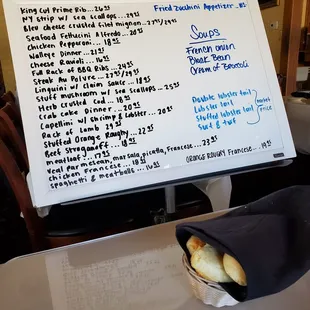 King Cut Prime Rib...26⁹⁵
NY strip w/ sea scallops...29⁹⁵
Bleu cheese crusted filet mignon...27⁹⁵/29⁹⁵
Seafood Fettucini Alfredo...20⁹⁵
Chicken Pepparoni...18⁹⁵
Walleye Dinner...21⁹⁵
Cheese Ravioli...16⁹⁵
Full Rack of BBQ Ribs...24⁹⁵
Steak Au Poivre...27⁹⁵/29⁹⁵
Linguini w/ Clam Sauce...18⁹⁵
Stuff mushroom w/ Sea Scallops...25⁹⁵
Herb Crusted Cod...18⁹⁵
Crab cake Dinner...20⁹⁵
Capellini w/ Shrimp & Lobster...20⁹⁵
Rack of Lamb 29⁹⁵
Stuffed Orange Roughy...22⁹⁵
Beef Stroganoff...18⁹⁵
meatloaf...17⁹⁵
Veal Parmesean, marsala, picatta, Francese...23⁹⁵
Chicken Francese...18⁹⁵
spaghetti & meatballs...16⁹⁵
Fried Zucchini Appetizer
Soups
French onion
Black Bean
Cream of Broccoli
Double lobster tail
Lobster tail
Stuffed lobster tail
Surf & turf
market
price
ORANGE ROUGHY Francese...19⁹⁵